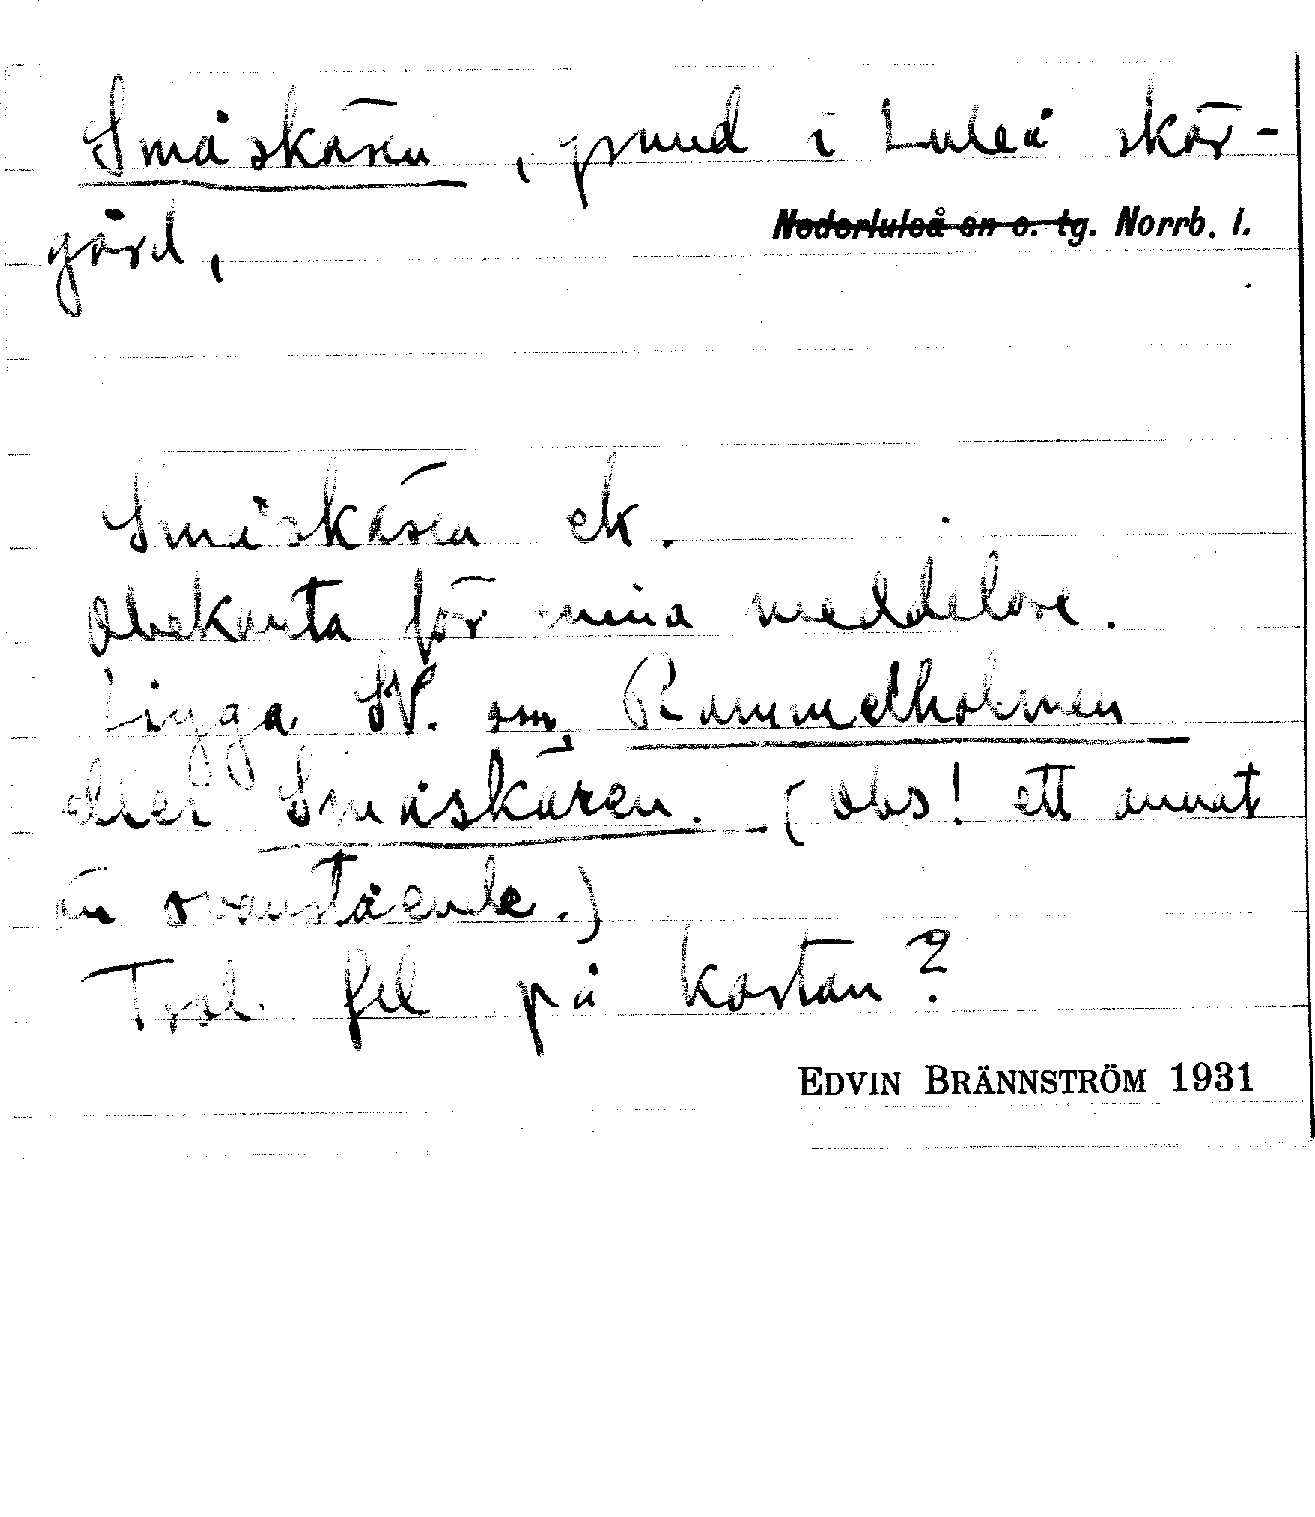 Småskären, grund i Luleå skär-
Nederluleå sn o. tg. Norrb. l.
gård,
Småskären ek.
Obekanta för mina meddelare.
Ligga SV. om Rammelholmen
eller Småskären. (Obs! ett annat
än ovanstående.)
Trol. fel på kartan?
EDVIN BRÄNNSTRÖM 1931